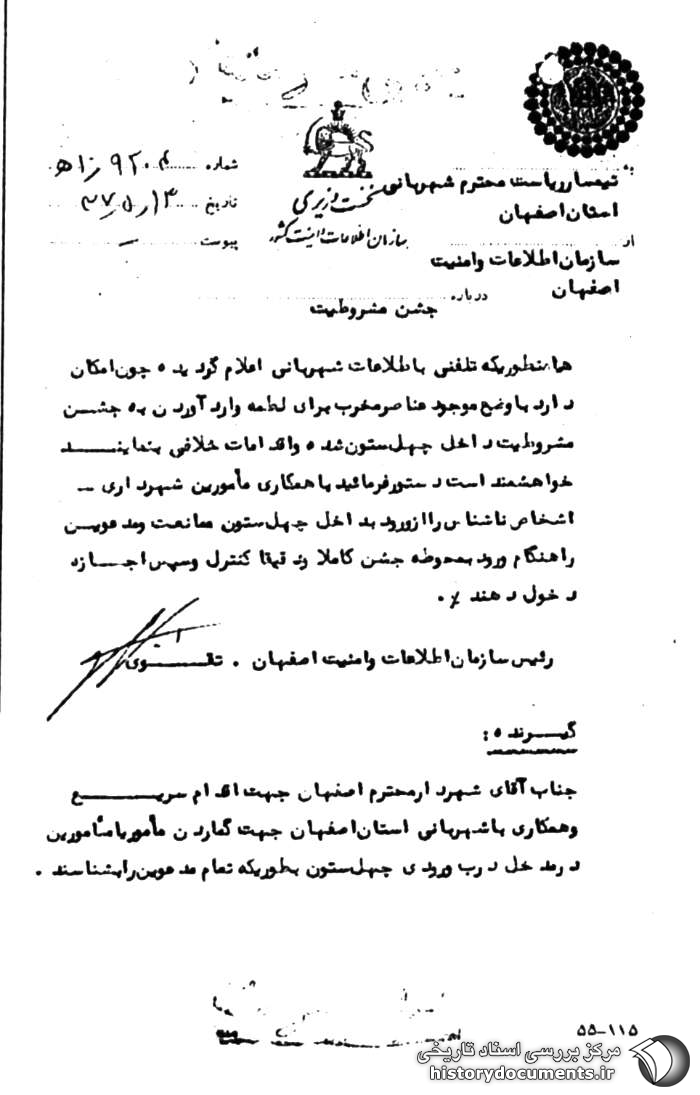 شماره ۹۲۰۴ / اه‍
تاریخ ۳۷/۵/۱۳
پیوست
نخست وزیری
سازمان اطلاعات و امنیت کشور
به تیمسار ریاست محترم شهربانی
استان اصفهان
از
سازمان اطلاعات وامنیت
اصفهان
درباره جشن مشروطیت
همانطوریکه تلفنی باطلاعات شهربانی اعلام گردیده چون امکان
دارد با وضع موجود عناصر مخرب برای لطمه وارد آوردن به جشن
مشروطیت داخل چهلستون شده واقدامات خلافی بنمایند
خواهشمند است دستور فرمائید با همکاری مأمورین شهرداری ــ
اشخاص ناشناس را از ورود بداخل چهلستون ممانعت ومدعوین
را هنگام ورود بمحوطه جشن کاملا ودقیقا کنترل وسپس اجازه
دخول دهند ٪.
رئیس سازمان اطلاعات وامنیت اصفهان . تقوی
گیرنده :
جناب آقای شهردار محترم اصفهان جهت اقدام سریع
وهمکاری باشهربانی استان اصفهان جهت گماردن مأمور یا مأمورین
در مدخل درب ورودی چهلستون بطوریکه تمام مدعوین رابشناسند .
۵۵-۱۱۵
مرکز بررسی اسناد تاریخی
historydocuments.ir